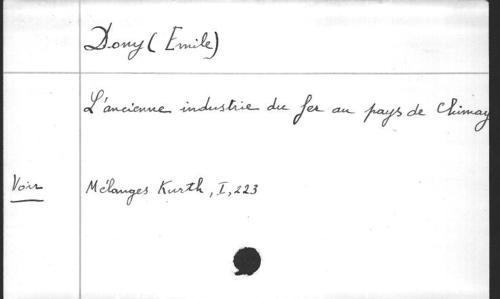 Dony (Emile)
L'ancienne industrie du fer au pays de Chimay
Voir Mélanges Kurth, I, 223